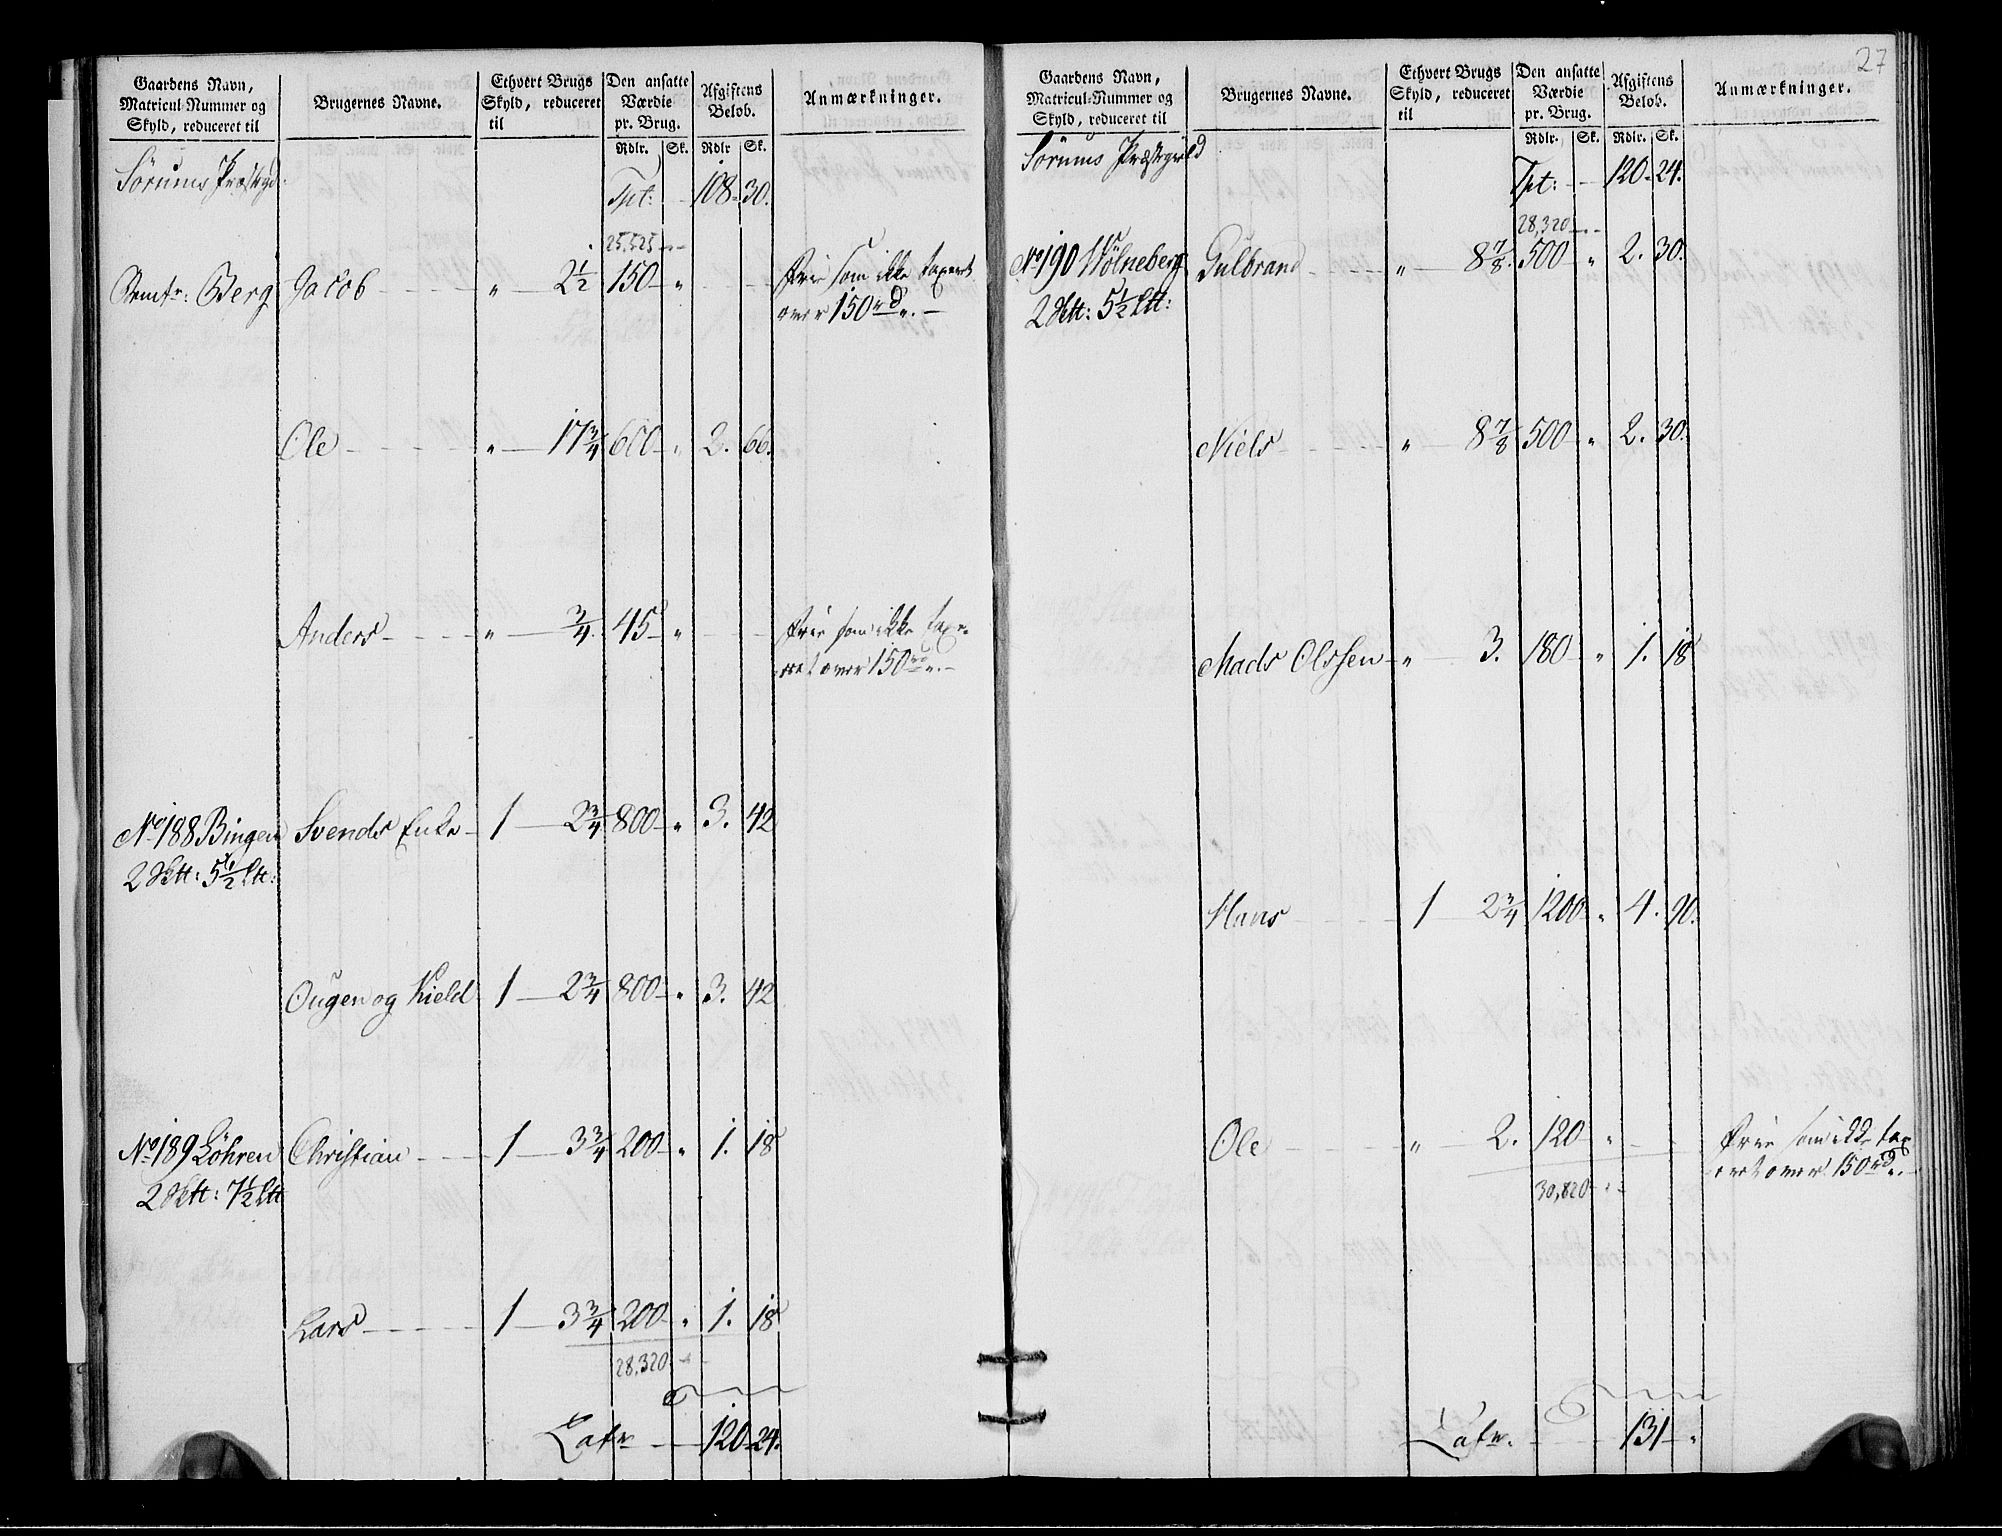 Gaardens Navn,
Matricul-Nummer og
Skyld, reduceret til
Brugernes Navne.
Ethvert Brugs
Skyld, reduceret
til
Den ansatte
Værdie
pr. Brug.
Rdlr. Sk.
Afgiftens
Belob.
Rdlr Sk.
Anmærkninger.
Sørums Præstegd:
Tpt: 108 30.
25,525
Remfr: Berg Jacob " 2 1/2 150 " frie som ikke taxeret
over 150 rd.
Ole " 17 3/4 600 " 2. 66.
Anders " 3/4 45 " frie som ikke taxe-
ret over 150 rd.
No 188 Bingen Svends Enke 1 2 3/4 800 " 3. 42
2 Sktt: 5 1/2 Ltt:
Ougen og Kield 1 2 3/4 800 " 3. 42
No 189 Løhren Christian 1 3 3/4 200 " 1. 18
2 Sktt: 7 1/2 Ltt
Lars 1 3 3/4 200 " 1. 18
28,320
Latr 120 24.
27
Gaardens Navn,
Matricul-Nummer og
Skyld, reduceret til
Brugernes Navne.
Ethvert Brugs
Skyld, reduceret
til
Den ansatte
Værdie
pr. Brug.
Rdlr. Sk.
Afgiftens
Belob.
Rdlr. Sk.
Anmærkninger.
Sørums Præstegield
Tpt: 120 24.
28,320
No 190 Wølneberg Gulbrand " 8 7/8. 500 " 2. 30.
2 Sktt: 5 1/2 Ltt:
Niels " 8 7/8 500 " 2. 30.
Mads Olssen " 3. 180 " 1. 18
Hans 1 2 3/4 1200 " 4. 90.
Ole " 2. 120 " frie som ikke tax
eret over 150 rd.
30,820
Latr. 131 "